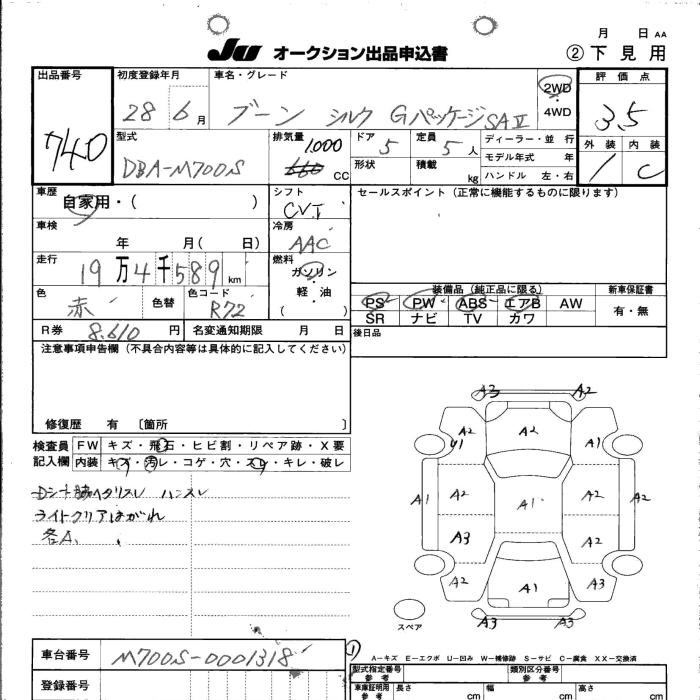 月 日 AA
JU オークション出品申込書 ②下見用
出品番号 初度登録年月 車名・グレード 2WD 評価点
740 28 6月 ブーン シルク Gパッケージ SAⅡ 4WD 3.5
型式 排気量 ドア 定員 ディーラー・並行 外装 内装
DBA-M700S 1,000 660 CC 5 5人 モデル年式 年 1 C
形状 積載 kg ハンドル 左・右
車歴 自家用・( ) シフト CVT セールスポイント(正常に機能するものに限ります)
車検 年 月( 日) 冷房 AAC
走行 19万4千589km 燃料 ガソリン 軽・油 ( )
装備品(純正品に限る) 新車保証書
色 赤 色替 色コード R72 PS PW ABS エアB AW 有・無
SR ナビ TV カワ
R券 8.610円 名変通知期限 月 日 後日品
注意事項申告欄(不具合内容等は具体的に記入してください)
修復歴 有 〔箇所 〕
検査員 FW キズ・飛石・ヒビ割・リペア跡・X要
記入欄 内装 キズ・汚レ・コゲ・穴・スレ・キレ・破レ
ハンスレ
ライトクリアはがれ
各A、
A3 A2
A2 U1 A2 A1
A1 A2 A1 A2 A2
A3 A2
A2 A1 A3
A3 A3
スペア
①
A-キズ E-エクボ U-凹み W-補修跡 S-サビ C-腐食 XX-交換済
車台番号 M700S-0001318 型式指定番号 参考 類別区分番号 参考
登録番号 車庫証明用 参考 長さ cm 幅 cm 高さ cm